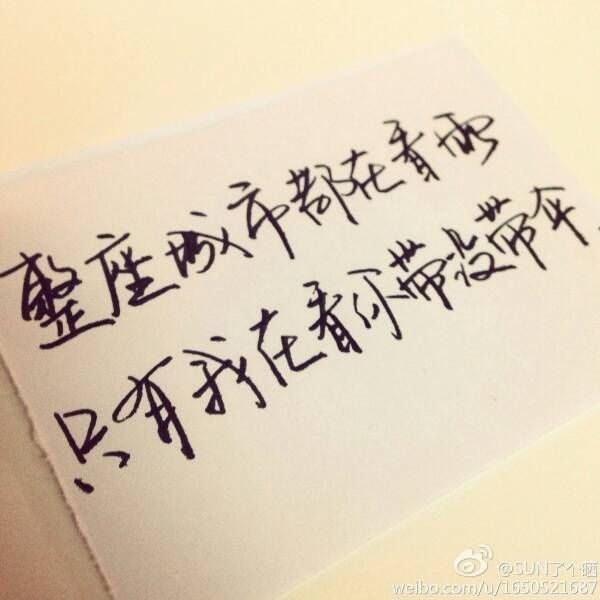 整座城市都在看雨
只有我在看你带没带伞.
@SUN了个晒
weibo.com/u/1650521687